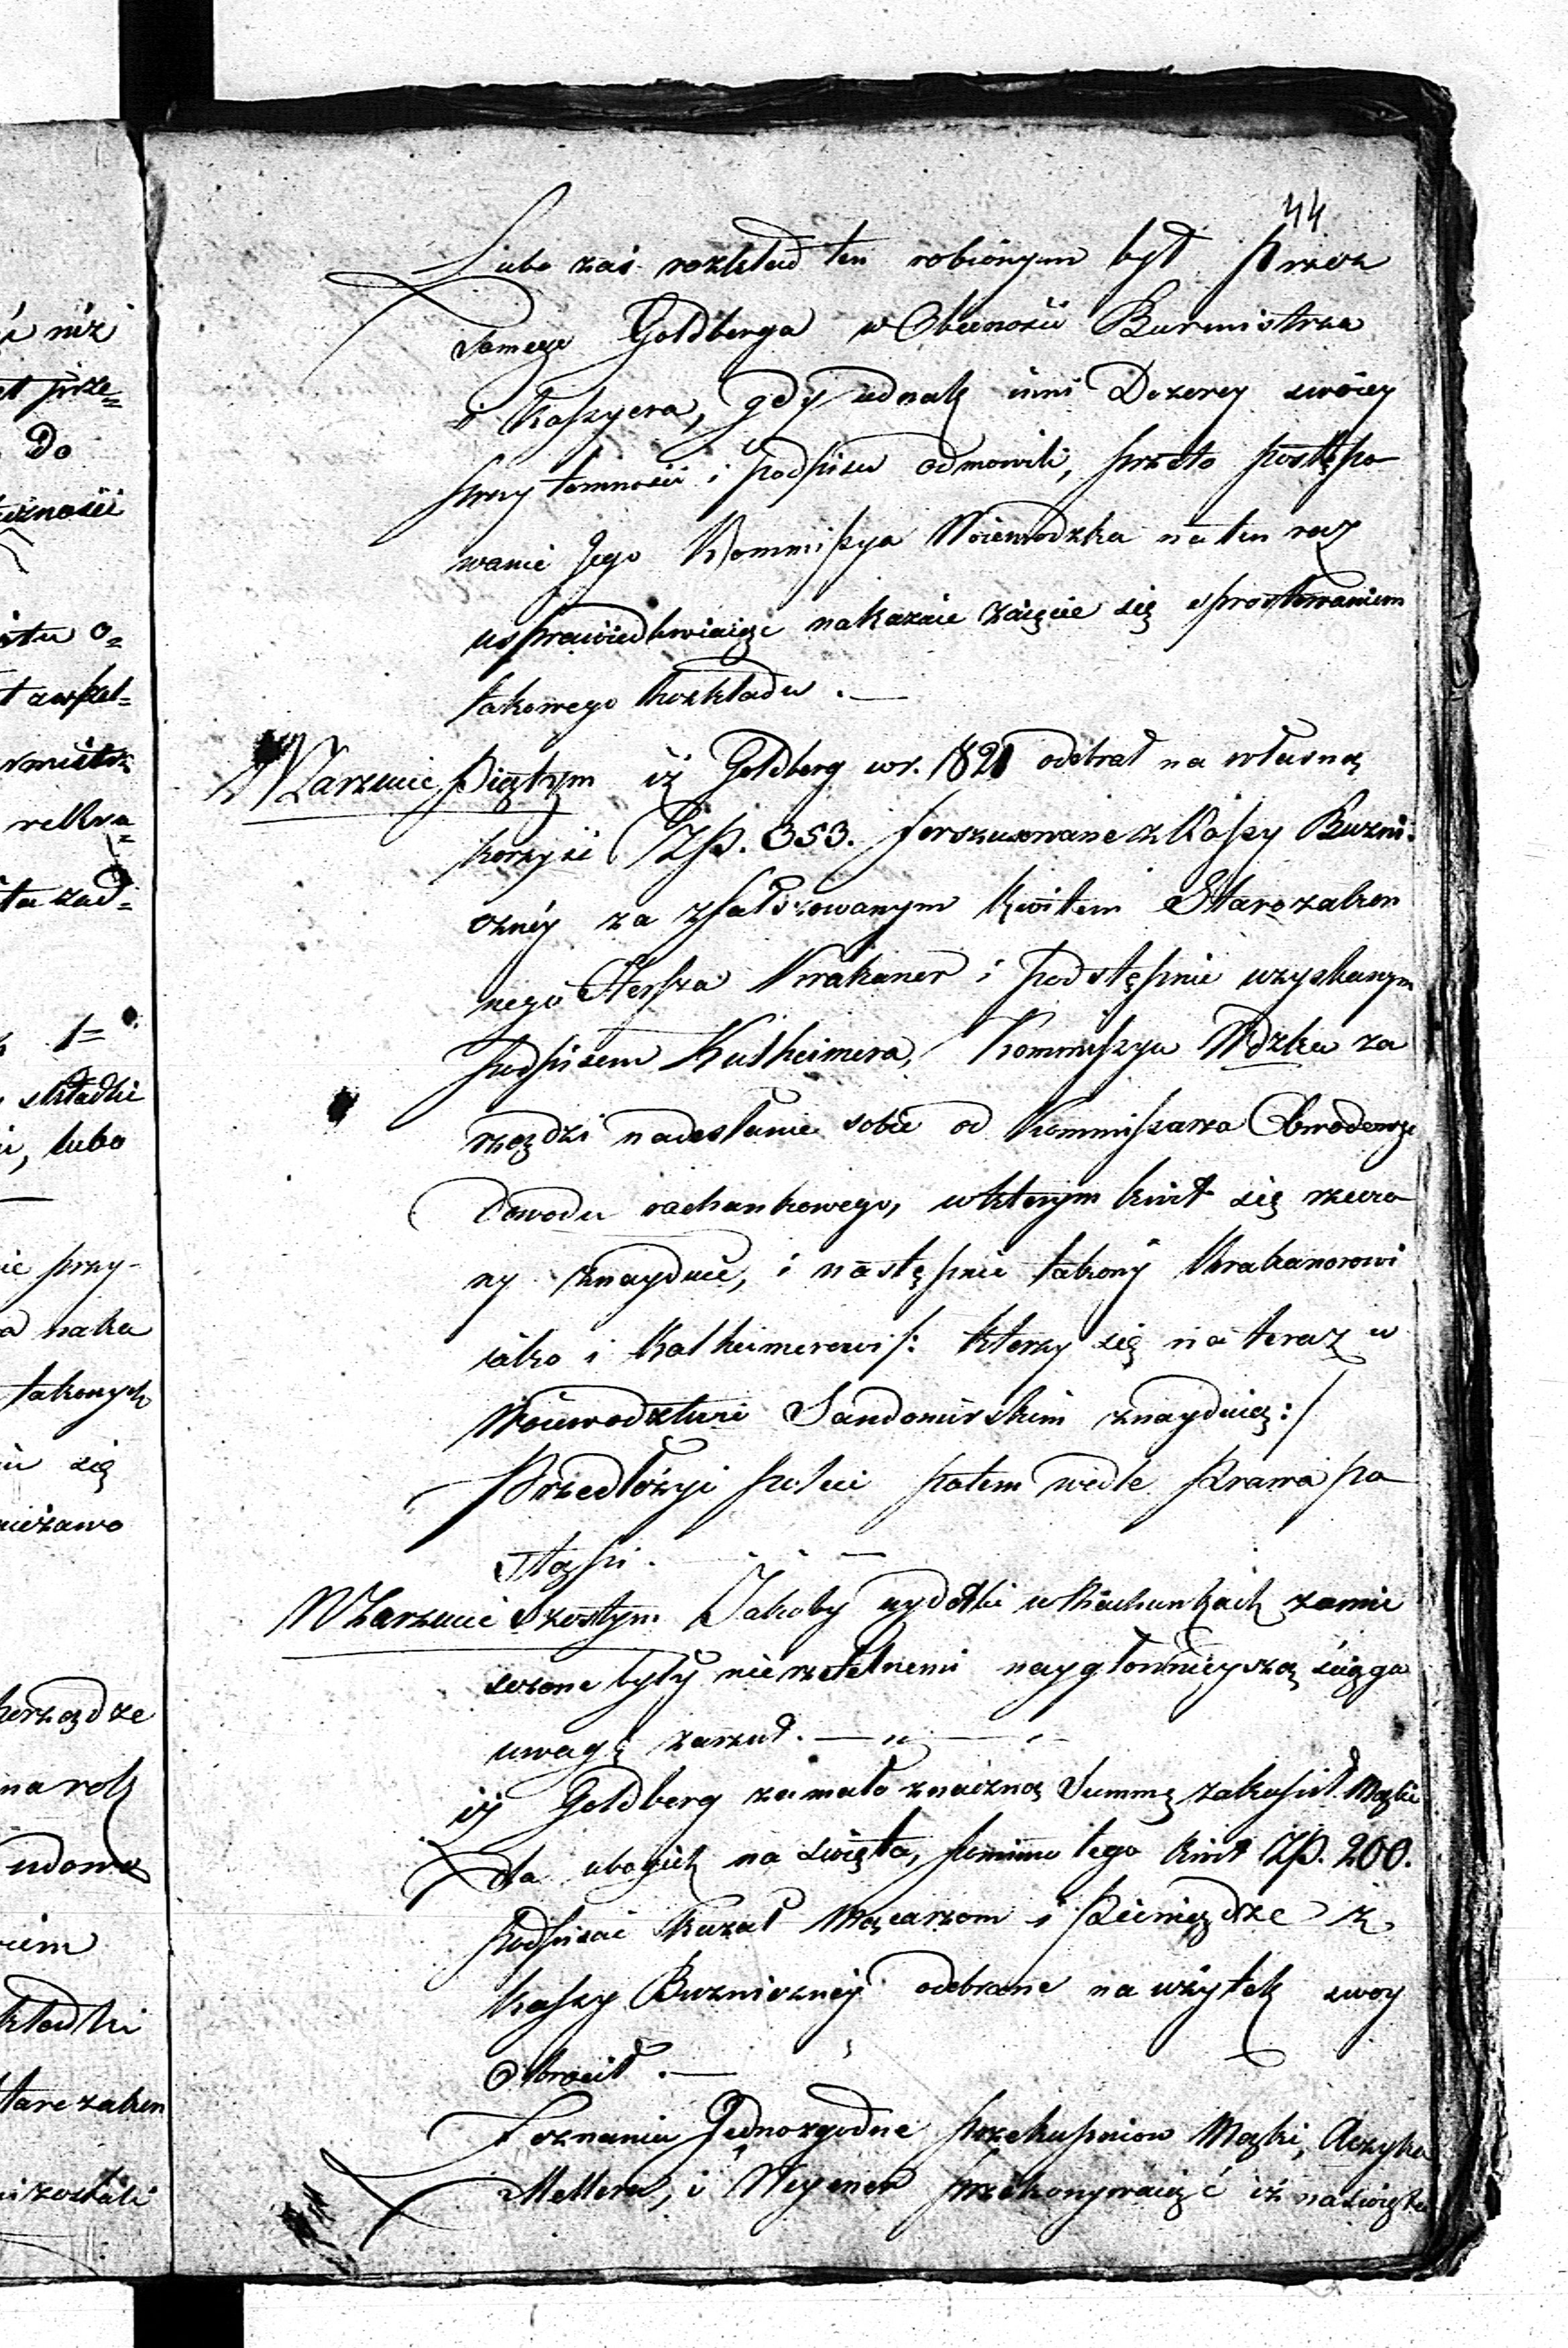 44
Lubo zaś rozkład ten robionym był przez
Samego Goldberga w Obecności Burmistrza
i Kassyera, gdy jednak inni Dozorcy swoiey
przytomności i podpisu odmowili, przeto postępo
wanie Jego Kommissya Woiewodzka na ten raz
usprawiedliwiaiąc nakazuie zaięcie się sprostowaniem
takowego Rozkładu. —
W Zarzucie Piątym iż Goldberg w r. 1821 odebrał na własną
korzyść Złp. 353. forszusowane z Kassy Bużni-
cznéy za zfałszowanym kwitem Starozakon
nego Herszka Krakaner i podstępnie uzyskanym
podpisem Kutheimera, Kommissya Wdzka za
rządzi nadesłanie sobie od Kommissarza Obwodowego
Dowodu rachunkowego, w którym kwit się rzeczo
ny znayduie, i następnie takowy Krakanorowi
iako i Katheimerowi /: którzy się na teraz w
Woiewodztwie Sandomirskim znayduią :/
Przedłożyć poleci potem wedle Prawa po
stąpi. — — —
W Zarzucie Szóstym Jakoby wydatki w Rachunkach zamie
szczone były nierzetelnemi naygłownieyszą ściąga
uwagę zarzut. — „ —
iż Goldberg za mało znaczną Summę zakupił Mąki
dla ubogich na święta, pomimo tego kwit Złp. 200.
Podpisać kazał Mącarzom i Pieniądze z
Kassy Bużniczney odebrane na użytek swoy
Obrócił. —
Zeznania Jednozgodne przekupniow Mąki, Aczyka
Mellera, i Wegener przekonywaiąć iż na święta
ż niż
prze=
Do
o=
rekru=
1=
składki
, lubo
ie przy-
a naka
takowych
się
na rok
kładki
Starozakon
zostali